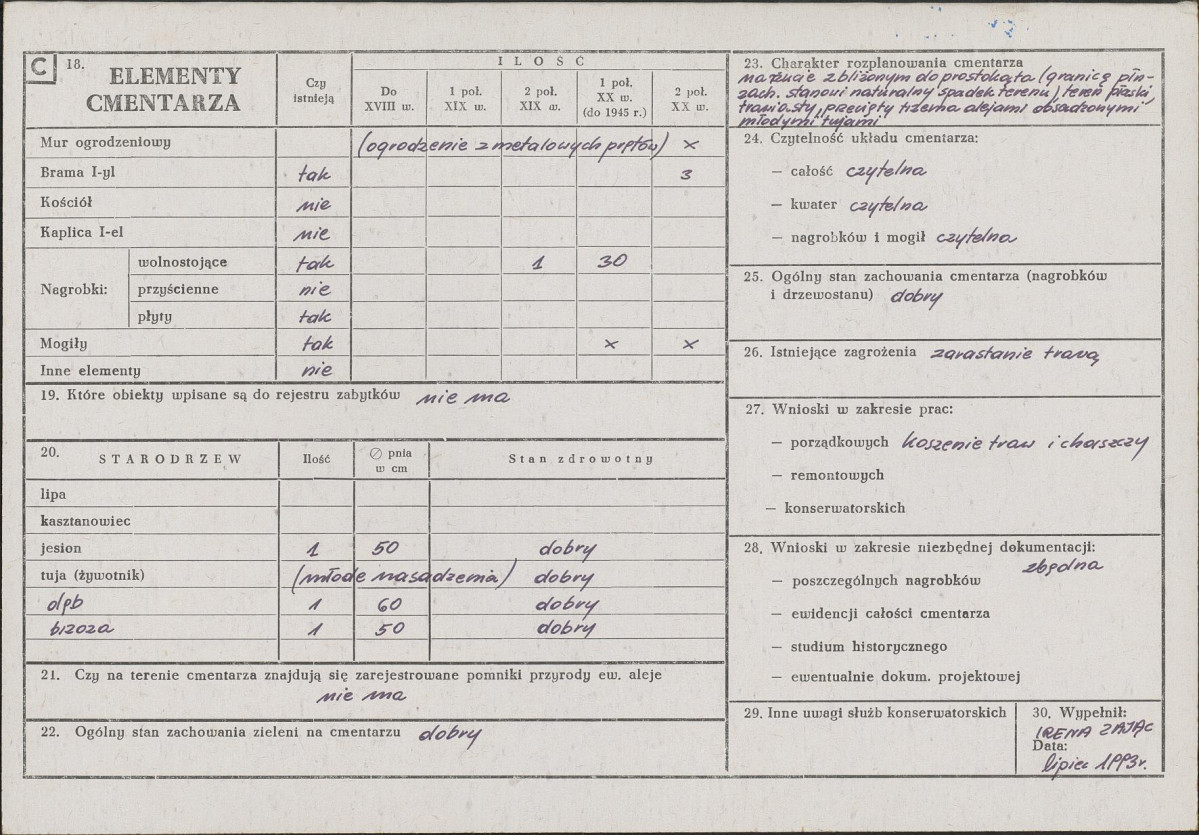 C 18. ELEMENTY CMENTARZA
Czy istnieją
ILOŚĆ
Do XVIII w.
1 poł. XIX w.
2 poł. XIX w.
1 poł. XX w. (do 1945 r.)
2 poł. XX w.
Mur ogrodzeniowy (ogrodzenie z metalowych prętów) x
Brama I-yl tak 3
Kościół nie
Kaplica I-el nie
Nagrobki:
wolnostojące tak 1 30
przyścienne nie
płyty tak
Mogiły tak x x
Inne elementy nie
19. Które obiekty wpisane są do rejestru zabytków nie ma
20. STARODRZEW Ilość ∅ pnia w cm Stan zdrowotny
lipa
kasztanowiec
jesion 1 50 dobry
tuja (żywotnik) (młode nasadzenia) dobry
dąb 1 60 dobry
brzoza 1 50 dobry
21. Czy na terenie cmentarza znajdują się zarejestrowane pomniki przyrody ew. aleje
nie ma
22. Ogólny stan zachowania zieleni na cmentarzu dobry
23. Charakter rozplanowania cmentarza
na rzucie zbliżonym do prostokąta (granicę płn-
zach. stanowi naturalny spadek terenu) teren płaski,
trawiasty, przecięty trzema alejami obsadzonymi
młodymi tujami
24. Czytelność układu cmentarza:
— całość czytelna
— kwater czytelna
— nagrobków i mogił czytelna
25. Ogólny stan zachowania cmentarza (nagrobków
i drzewostanu) dobry
26. Istniejące zagrożenia zarastanie trawą
27. Wnioski w zakresie prac:
— porządkowych koszenie traw i chaszczy
— remontowych
— konserwatorskich
28. Wnioski w zakresie niezbędnej dokumentacji:
zbędna
— poszczególnych nagrobków
— ewidencji całości cmentarza
— studium historycznego
— ewentualnie dokum. projektowej
29. Inne uwagi służb konserwatorskich
30. Wypełnił:
IRENA ZAJĄC
Data:
lipiec 1993r.